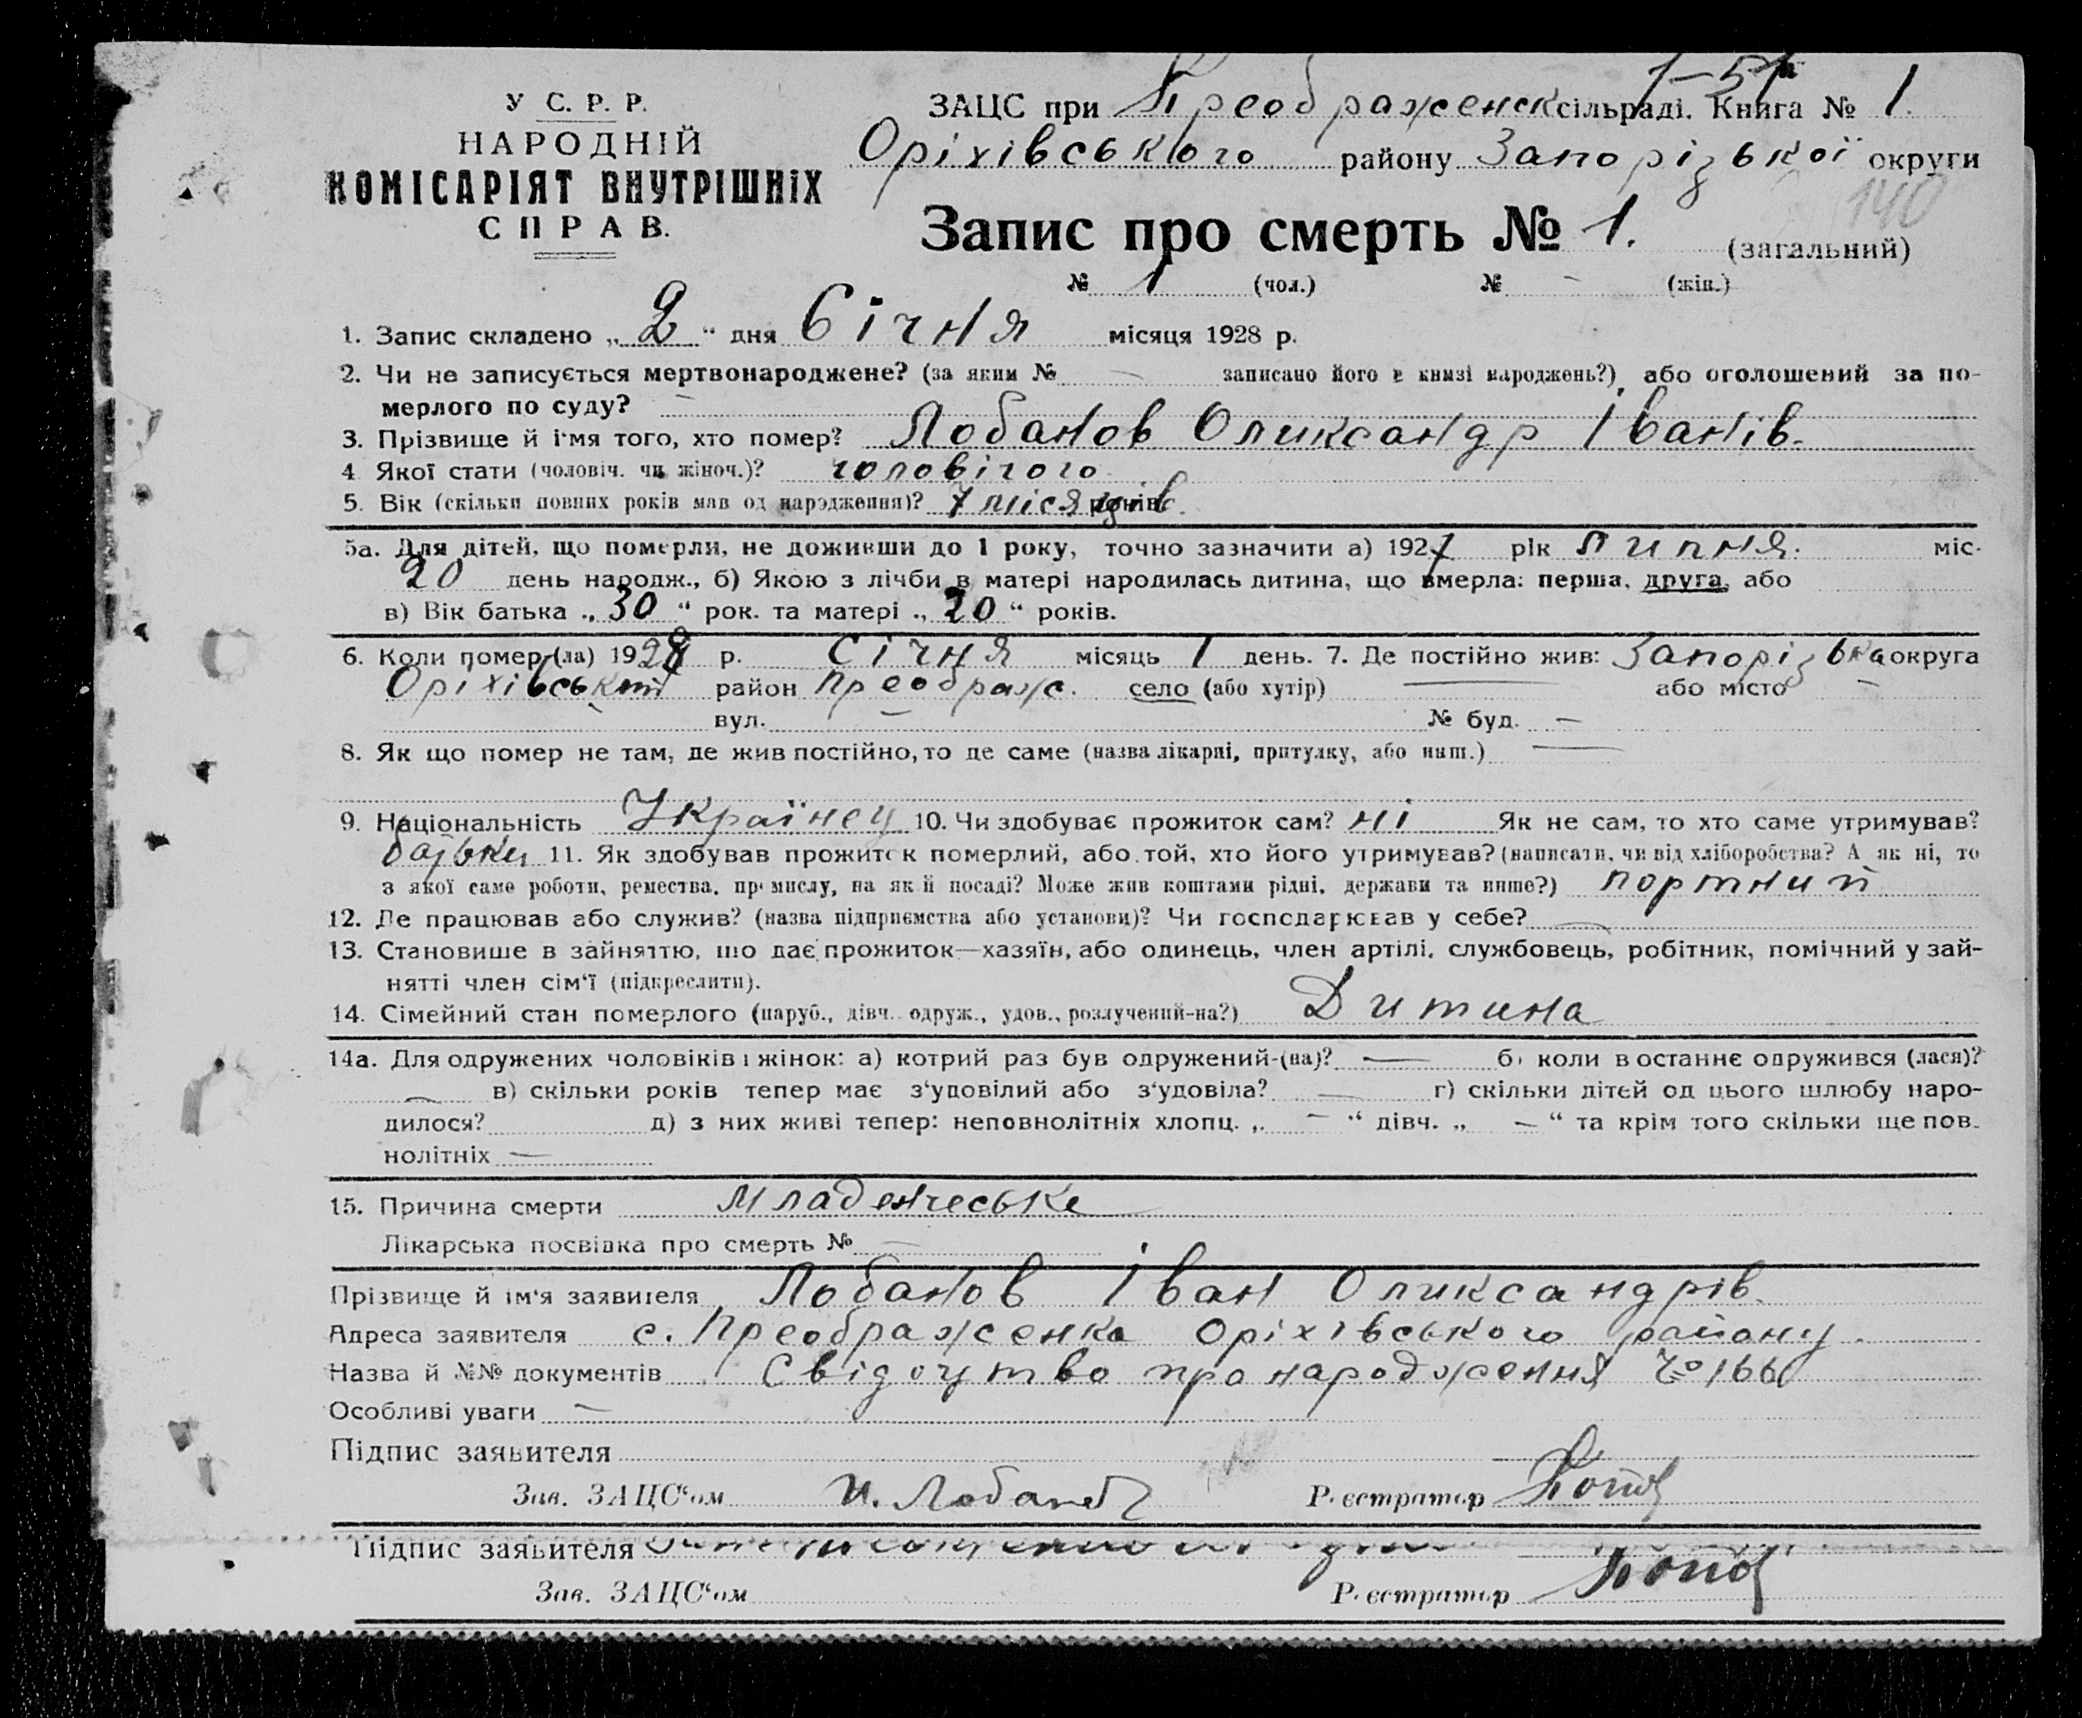 1–51
У С. Р. Р.
НАРОДНІЙ
КОМІСАРІЯТ ВНУТРІШНІХ
СПРАВ.
ЗАЦС при Преображенск сільраді. Книга № 1.
Оріхівського району Запорізької округи
140
Запис про смерть № 1. (загальний)
№ 1 (чол.) № – (жін.)
1. Запис складено „ 2 “ дня Січня місяця 1928 р.
2. Чи не записується мертвонароджене? (за яким № — записано його в книзі народжень?), або оголошений за по-
мерлого по суду? —
3. Прізвище й і́мя того, хто помер? Лобанов Олександр Іванів.
4 Якої стати (чоловіч. чи жіноч.)? чоловічого
5. Вік (скільки повних років мав од народження)? 7 місяців років.
5а. Для дітей, що померли, не доживши до 1 року, точно зазначити а) 1927 рік Липня. міс.
20 день народж., б) Якою з лічби в матері народилась дитина, що вмерла: перша, друга, або
в) Вік батька „ 30 “ рок. та матері „ 20 “ років.
6. Коли помер (ла) 1928 р. Січня місяць 1 день. 7. Де постійно жив: Запорізька округа
Оріхівський район Преображ. село (або хутір) — або місто —
вул. — № буд. —
8. Як що помер не там, де жив постійно, то де саме (назва лікарні, притулку, або инш.) —
9. Національність Українец 10. Чи здобуває прожиток сам? ні Як не сам, то хто саме утримував?
батьки 11. Як здобував прожиток померлий, або той, хто його утримував? (написати, чи від хліборобства? А як ні, то
з якої саме роботи, ремества, промислу, на якій посаді? Може жив коштами рідні, держави та инше?) портний
12. Де працював або служив? (назва підприємства або установи)? Чи господарював у себе? —
13. Становище в зайняттю, що дає прожиток—хазяїн, або одинець, член артілі, службовець, робітник, помічний у зай-
нятті член сім‘ї (підкреслити).
14. Сімейний стан померлого (паруб., дівч. одруж., удов., розлучений-на?) Дитина
14а. Для одружених чоловіків і жінок: а) котрий раз був одружений-(на)? — б) коли востаннє одружився (лася)?
— в) скільки років тепер має з‘удовілий або з‘удовіла? — г) скільки дітей од цього шлюбу наро-
дилося? д) з них живі тепер: неповнолітніх хлопц. „ — “ дівч. „ — “ та крім того скільки ще пов-
нолітніх —
15. Причина смерти Младенчеське
Лікарська посвідка про смерть № —
Прізвище й ім‘я заявителя Лобанов Іван Олександрів.
Адреса заявителя с. Преображенка Оріхівського району.
Назва й №№ документів Свідоцтво про народження № 166
Особливі уваги —
Підпис заявителя
Зав. ЗАЦС‘ом И. Лобанов Реєстратор
Підпис заявителя
Зав. ЗАЦС‘ом Реєстратор